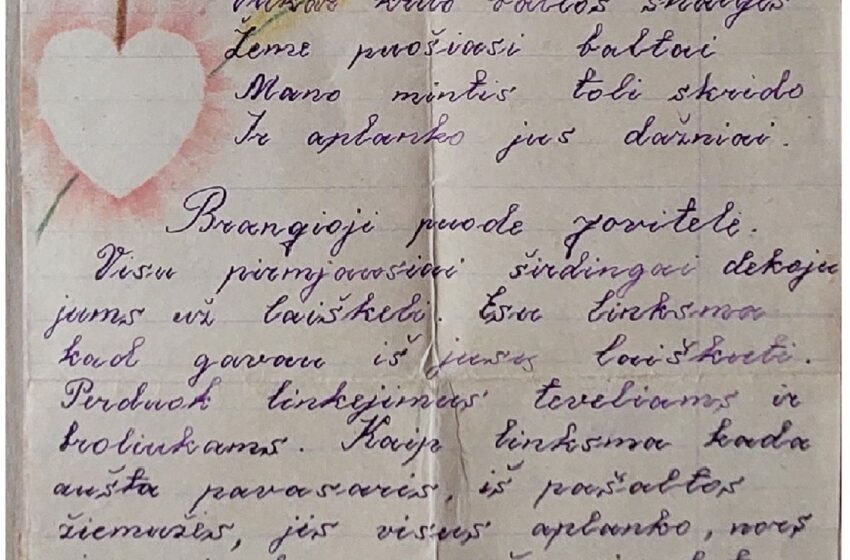 krito baltos snaigės
Žeme puošiasi baltai
Mano mintis toli skrido
Ir aplanko jus dažniai.
Brangioji puode Jovitele.
Visu pirmjausiai širdingai dekoju
jums už laiškeli. Esu linksma
kad gavau iš jusus laiškuti.
Perduok linkejimus teveliams ir
broliukams. Kaip linksma kada
aušta pavasaris, iš pašaltos
žiemužes, jis visus aplanko, nors